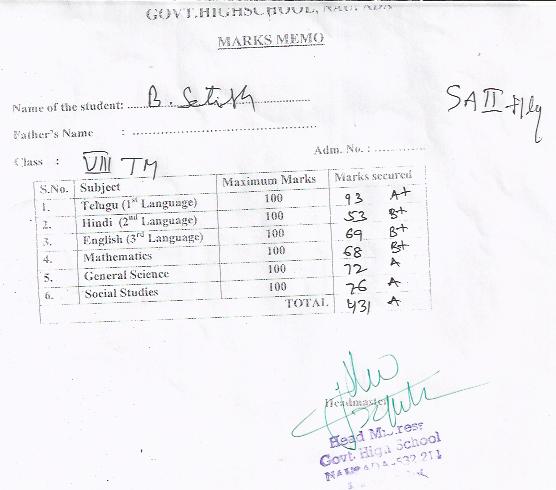 GOVT.HIGHSCHOOL, NAUPADA
MARKS MEMO
Name of the student: B. Satish
SA II
Father's Name :
Adm. No. :
Class : VIII TM
S.No. Subject Maximum Marks Marks secured
1. Telugu (1st Language) 100 93 A+
2. Hindi (2nd Language) 100 53 B+
3. English (3rd Language) 100 69 B+
4. Mathematics 100 68 B+
5. General Science 100 72 A
6. Social Studies 100 76 A
TOTAL 431 A
Headmaster
Head Mistress
Govt. High School
NAUPADA-532 211